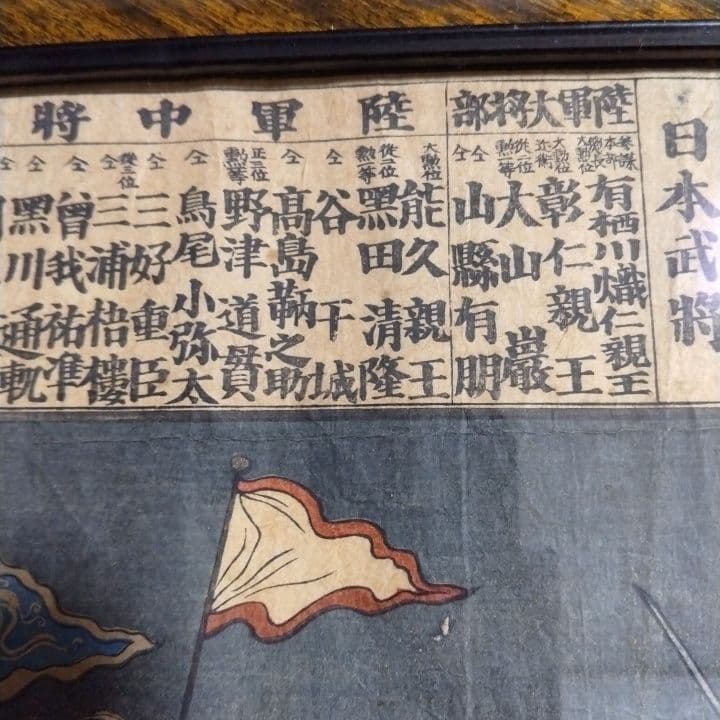 日本武將
陸軍大將部
參謀本部總長大勳位
有栖川熾仁親王
大勳位近衛
彰仁親王
從二位勳一等
大山巖
仝
仝
山縣有朋
陸軍中將
大勳位
能久親王
從二位勳一等
黑田清隆
仝
谷干城
仝
高島鞆之助
正三位勳二等
野津道貫
仝
鳥尾小弥太
仝
三好重臣
從三位
三浦梧樓
仝
曾我祐準
仝
黑川通軌
仝